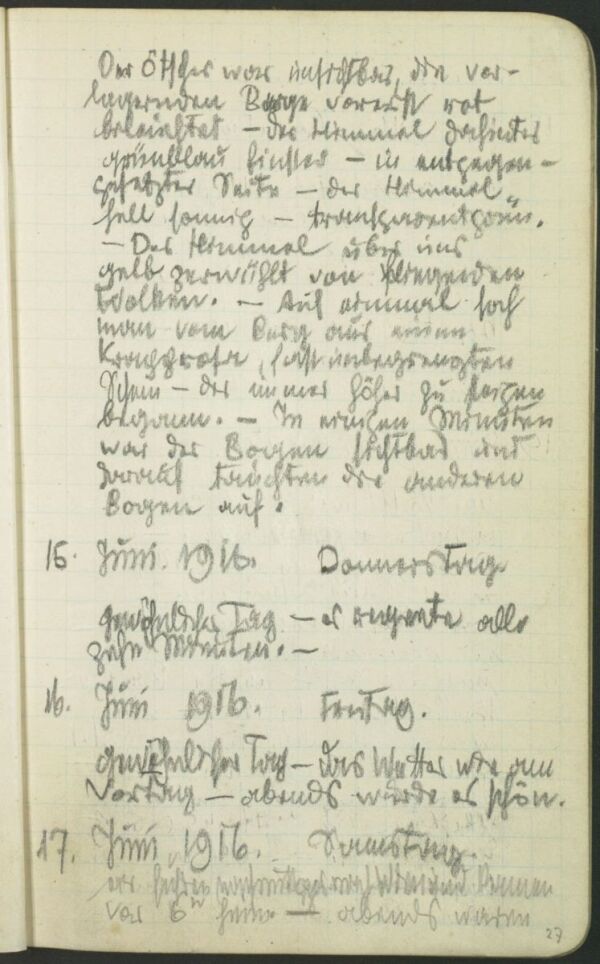 Der Ötscher war unsichtbar, die vor-
lagernden Berge vorerst rot
beleuchtet – der Himmel dahinter
grünblau finster – in entgegen-
gesetzter Seite – der Himmel
hell sonnig – transparentgrün.
– Der Himmel über uns
gelb zerwühlt von fliegenden
Wolken. – Auf einmal sah
man vom Berg aus einen
krapprosa, fast unbegrenzten
Schein – der immer höher zu steigen
begann. – In einigen Minuten
war der Bogen sichtbar und
darauf tauchten die anderen
Bogen auf.
15. Juni 1916. Donnerstag
gewöhnlicher Tag – es regnete alle
zehn Minuten. –
16. Juni 1916. Freitag.
gewöhnlicher Tag – das Wetter wie am
Vortag – abends wurde es schön.
17. Juni 1916. Samstag.
wir fuhren nachmittags nach und kamen
vor 6 heim – abends waren
27